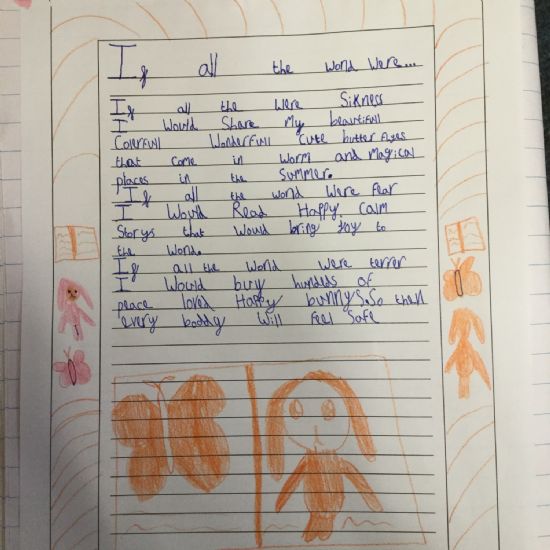 If all the world were...
If all the were Sikness
I would Share My beautifull
Colerfull Wonderfull Cute butter flyes
that come in worm and Magical
places in the Summer.
If all the world were fear
I Would Read Happy Calm
Storys that would bring Joy to
the World.
If all the World were terrer
I Would buy hundlds of
peace loved Happy bunnys. So then
every boddy will feel Safe